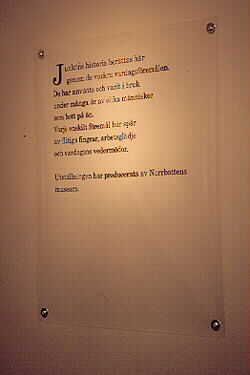 Junköns historia berättas här
genom de vackra vardagsföremålen.
De har använts och varit i bruk
under många år av olika människor
som bott på ön.
Varje enskilt föremål bär spår
av flitiga fingrar, arbetsglädje
och vardagens vedermödor.
Utställningen har producerats av Norrbottens
museum.